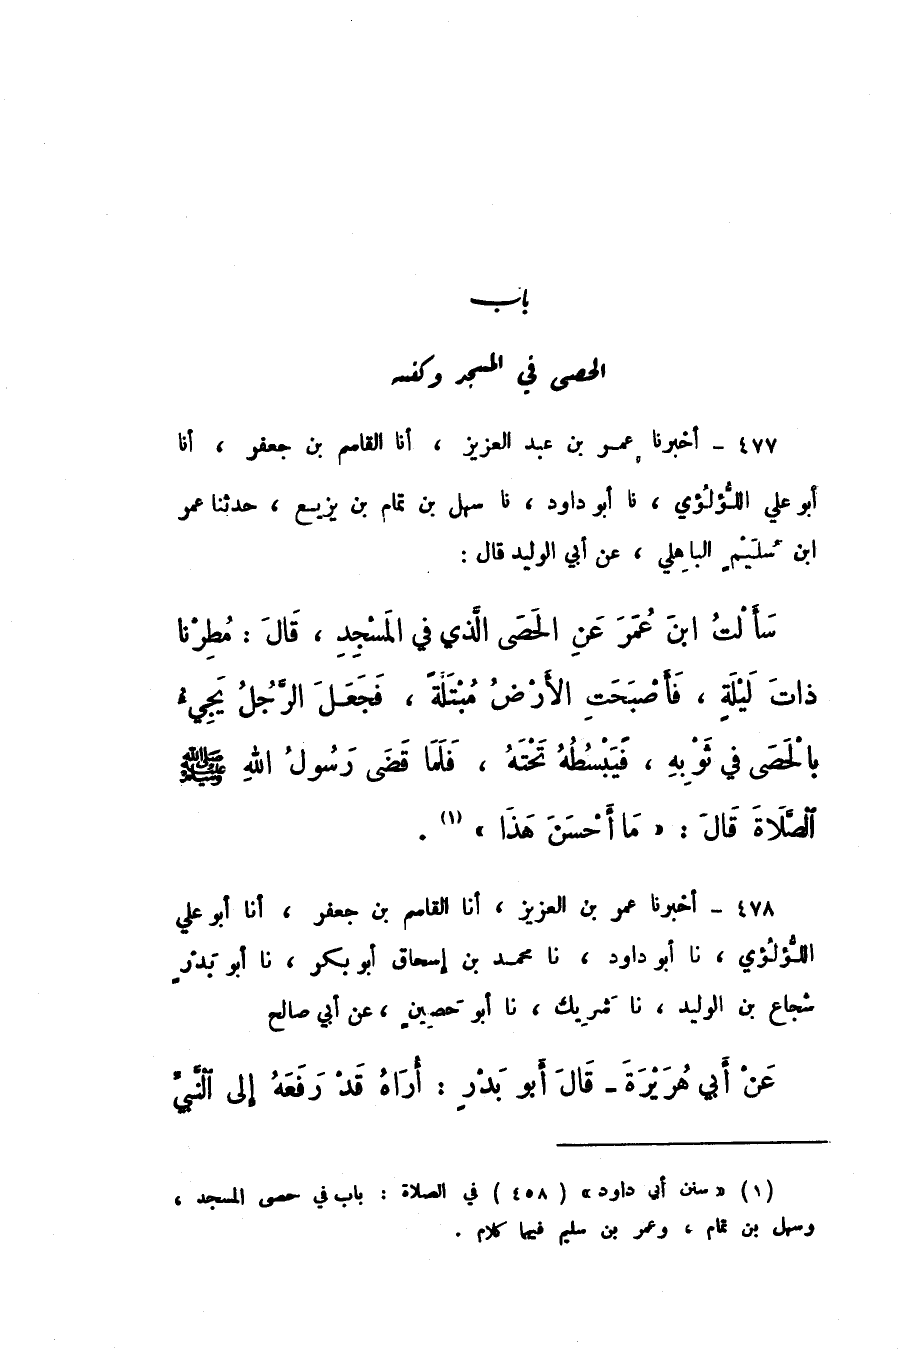 باب
الحصى في المسجد وكنسه
٤٧٧ – أخبرنا عمر بن عبد العزيز ، أنا القاسم بن جعفر ، أنا
أبو علي اللُّؤلُؤي ، نا أبو داود ، نا سهل بن تمام بن بزيع ، حدثنا عمر
ابن سُلَيْمٍ الباهِلي ، عن أبي الوليد قال :
سَأَلْتُ ابنَ عُمَرَ عَنِ الحَصَى الَّذي في المَسْجِدِ ، قَالَ : مُطِرْنا
ذاتَ لَيْلَةٍ ، فَأَصْبَحَتِ الأَرْضُ مُبْتَلَّةً ، فَجَعَلَ الرَّجُلُ يَجِيءُ
بالْحَصَى في ثَوْبِهِ ، فَيَبْسُطُهُ تَحْتَهُ ، فَلَمَّا قَضَى رَسُولُ اللهِ ﷺ
الصَّلَاةَ قَالَ : « مَا أَحْسَنَ هَذَا » (١) .
٤٧٨ – أخبرنا عمر بن العزيز ، أنا القاسم بن جعفر ، أنا أبو علي
اللُّؤلُؤي ، نا أبو داود ، نا محمد بن إسحاق أبو بكر ، نا أبو بَدْرٍ
شجاع بن الوليد ، نا شَرِيك ، نا أبو حَصِينٍ ، عن أبي صالح
عَنْ أَبي هُرَيْرَةَ – قَالَ أَبو بَدْرٍ : أُرَاهُ قَدْ رَفَعَهُ إلى النَّبيِّ
(١) « سنن أبي داود » ( ٤٥٨ ) في الصلاة : باب في حصى المسجد ،
وسهل بن تمام ، وعمر بن سليم فيهما كلام .